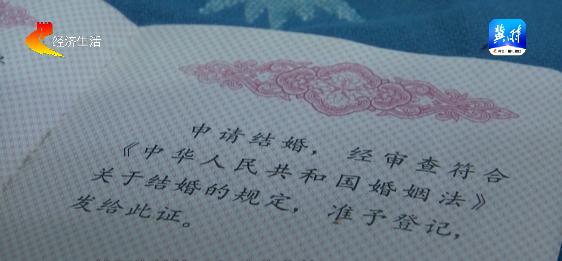 经济生活
冀时
申请结婚，经审查符合
《中华人民共和国婚姻法》
关于结婚的规定，准予登记，
发给此证。